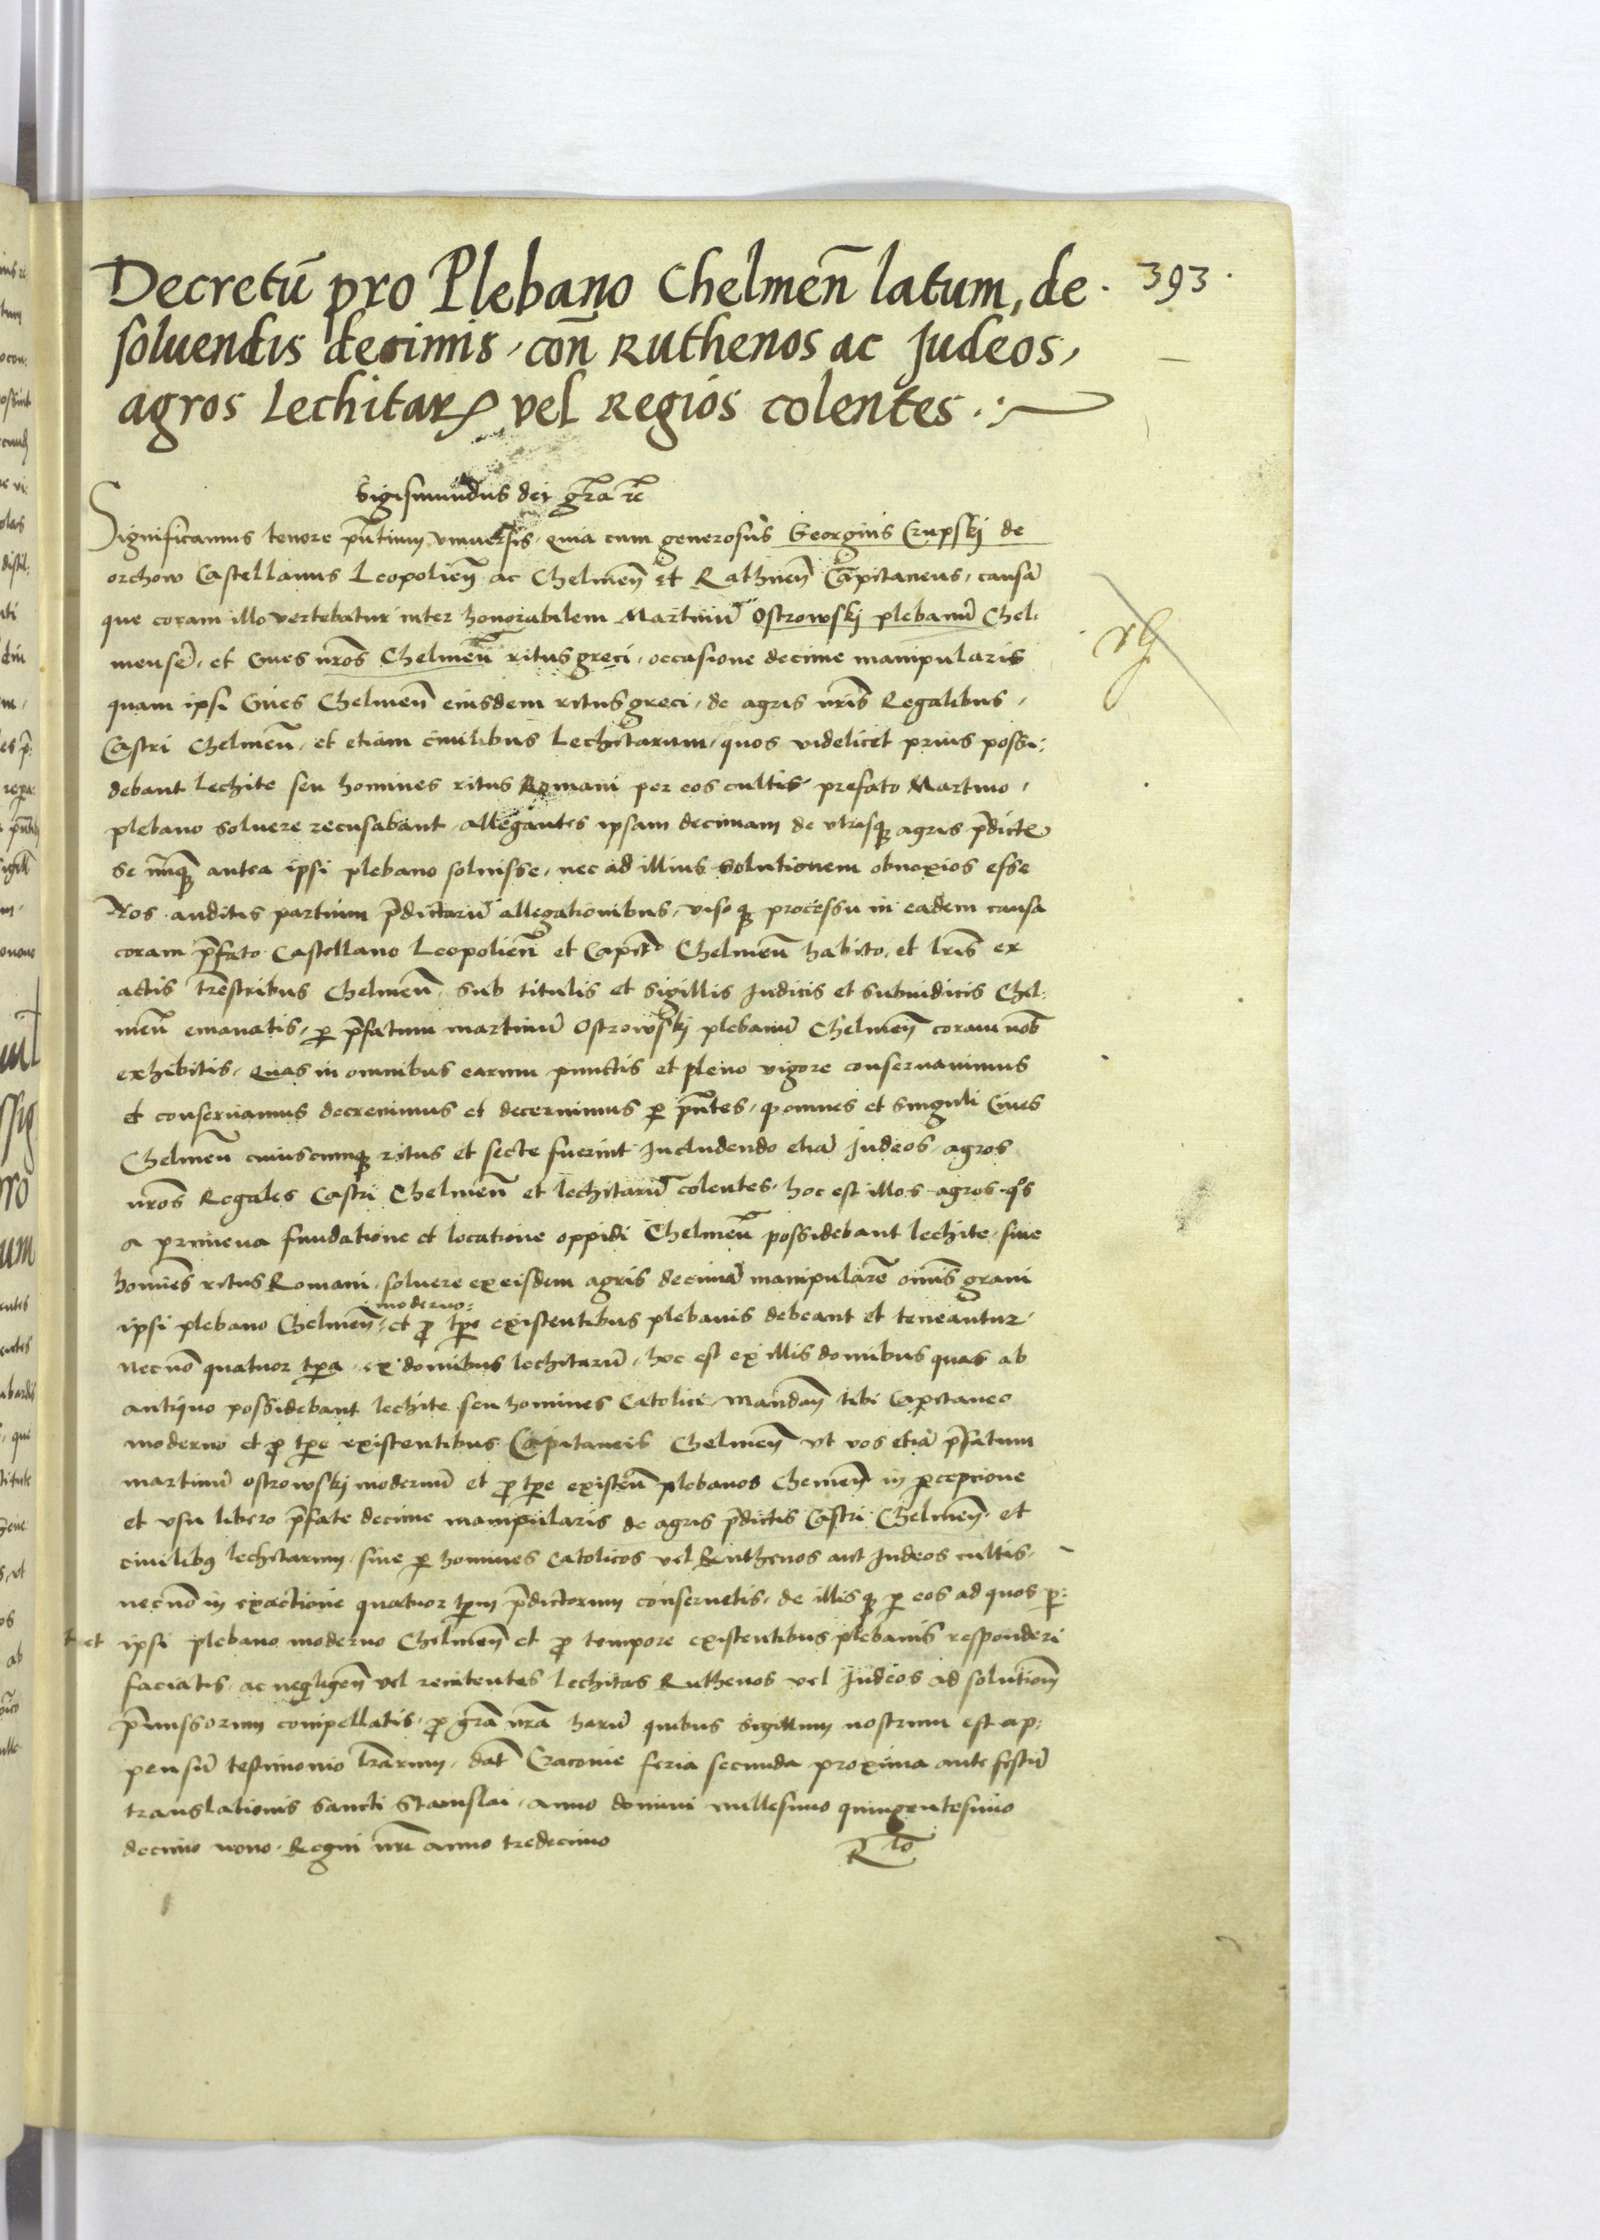 Decretū pro Plebano Chelmeñ latum, de
393
soluendis decimis, con̄ Ruthenos ac Judeos,
agros Lechitarꝝ vel Regios colentes.
Sigismundus dei gr̄a rē
Significamus tenore pn̄tium vniuersis, quia cum generosus Georgius Crupskj de
orchow Castellanus Leopolień ac Chelmeñ et Rathneñ Capitaneus, causā
que coram illo vertebatur inter honorabilem Martinū Ostrowskj plebanū Chel:
mensē, et Ciues nr̄os Chelmeñ ritus greci, occasione decime manipularis
quam ipsi Ciues Chelmeñ eiusdem ritus greci, de agris nr̄is Regalibus,
Castri Chelmeñ, et etiam ciuilibus Lechitarum, quos videlicet prius possi:
debant Lechite seu homines ritus Romani per eos cultis prefato Martino,
plebano soluere recusabant, allegantes ipsam decimam de vtrisqꝫ agris p̄dicte
se nunqꝫ antea ipsi plebano soluisse, nec ad illius solutionem obnoxios esse
Nos auditis partium p̄dictarū allegationibus, visoqꝫ processu in eadem causa
coram p̄fato Castellano Leopolień et Capito Chelmeñ habito, et lr̄is ex
actis trr̄estribus Chelmeñ sub titulis et sigillis Iudicis et subiudicis Chel:
meñ emanatis, ꝑ p̄fatum martinū Ostrowskj plebanū Chelmeñ coram nob̄
exhibitis, quas in omnibus earum punctis et pleno vigore conseruauimus
et conseruamus decreuimus et decernimus ꝑ pn̄tes, ꝙ omnes et singuli Ciues
Chelmeñ cuiuscumqꝫ ritus et secte fuerint Includendo etiā Judeos, agros
nr̄os Regales Castri Chelmeñ et lechitarū colentes, hoc est illos agros qͦs
a primeua fundatione et locatione oppidi Chelmeñ possidebant lechite, siue
homīes ritus Romani, soluere ex eisdem agris decimā manipularē om̄is grani
moderno:
ipsi plebano Chelmeñ, et ꝓ tp̄e existentibus plebanis debeant et teneantur,
necnō quatuor tp̄a, ex domibus lechitarū, hoc est ex illis domibus quas ab
antiquo possidebant lechite seu homines Catolici, Mandam̄ tibi Capitaneo
moderno et ꝓ tp̄e existentibus Capitaneis Chelmeñ vt vos etiā p̄fatum
martinū ostrowskj modernū et ꝓ tp̄e existeñ plebanos Chemeñ in ꝑceptione
et vsu libero p̄fate decime manipularis de agris p̄dictis Castri Chelmeñ et
ciuilibꝰ lechitarum, siue ꝑ homines Catolicos vel Ruthenos aut Judeos cultis,
necnō in exactione quatuor tp̄m p̄dictorum conseruetis, de illisqꝫ ꝑ eos ad quos ꝑ:
t et ipsi plebano moderno Chelmeñ et ꝓ tempore existentibus plebanis responderi
faciatis, ac negligen̄ vel renitentes lechitas Ruthenos vel Judeos ad solutiom̄
p̄missorum compellatis, ꝓ gr̄a nr̄a harū quibus sigillum nostrum est ap:
pensū testimonio lr̄arum, dat̄ Cracouie feria secunda proxima ante festū
translationis sancti Stanislai, anno domini millesimo quingentesimo
decimo nono, Regni nr̄i anno tredecimo
Rͭͦ